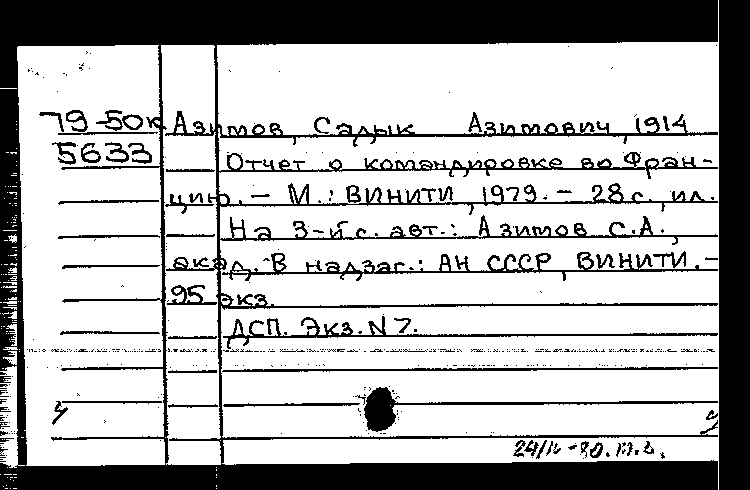 79-50к Азимов, Садык Азимович, 1914
5633 Отчет о командировке во Фран-
цию. - М.: ВИНИТИ, 1979. - 28 с., ил.
На 3-й с. авт.: Азимов С.А.,
акад. В надзаг.: АН СССР, ВИНИТИ. -
95 экз.
ДСП. Экз. N 7.